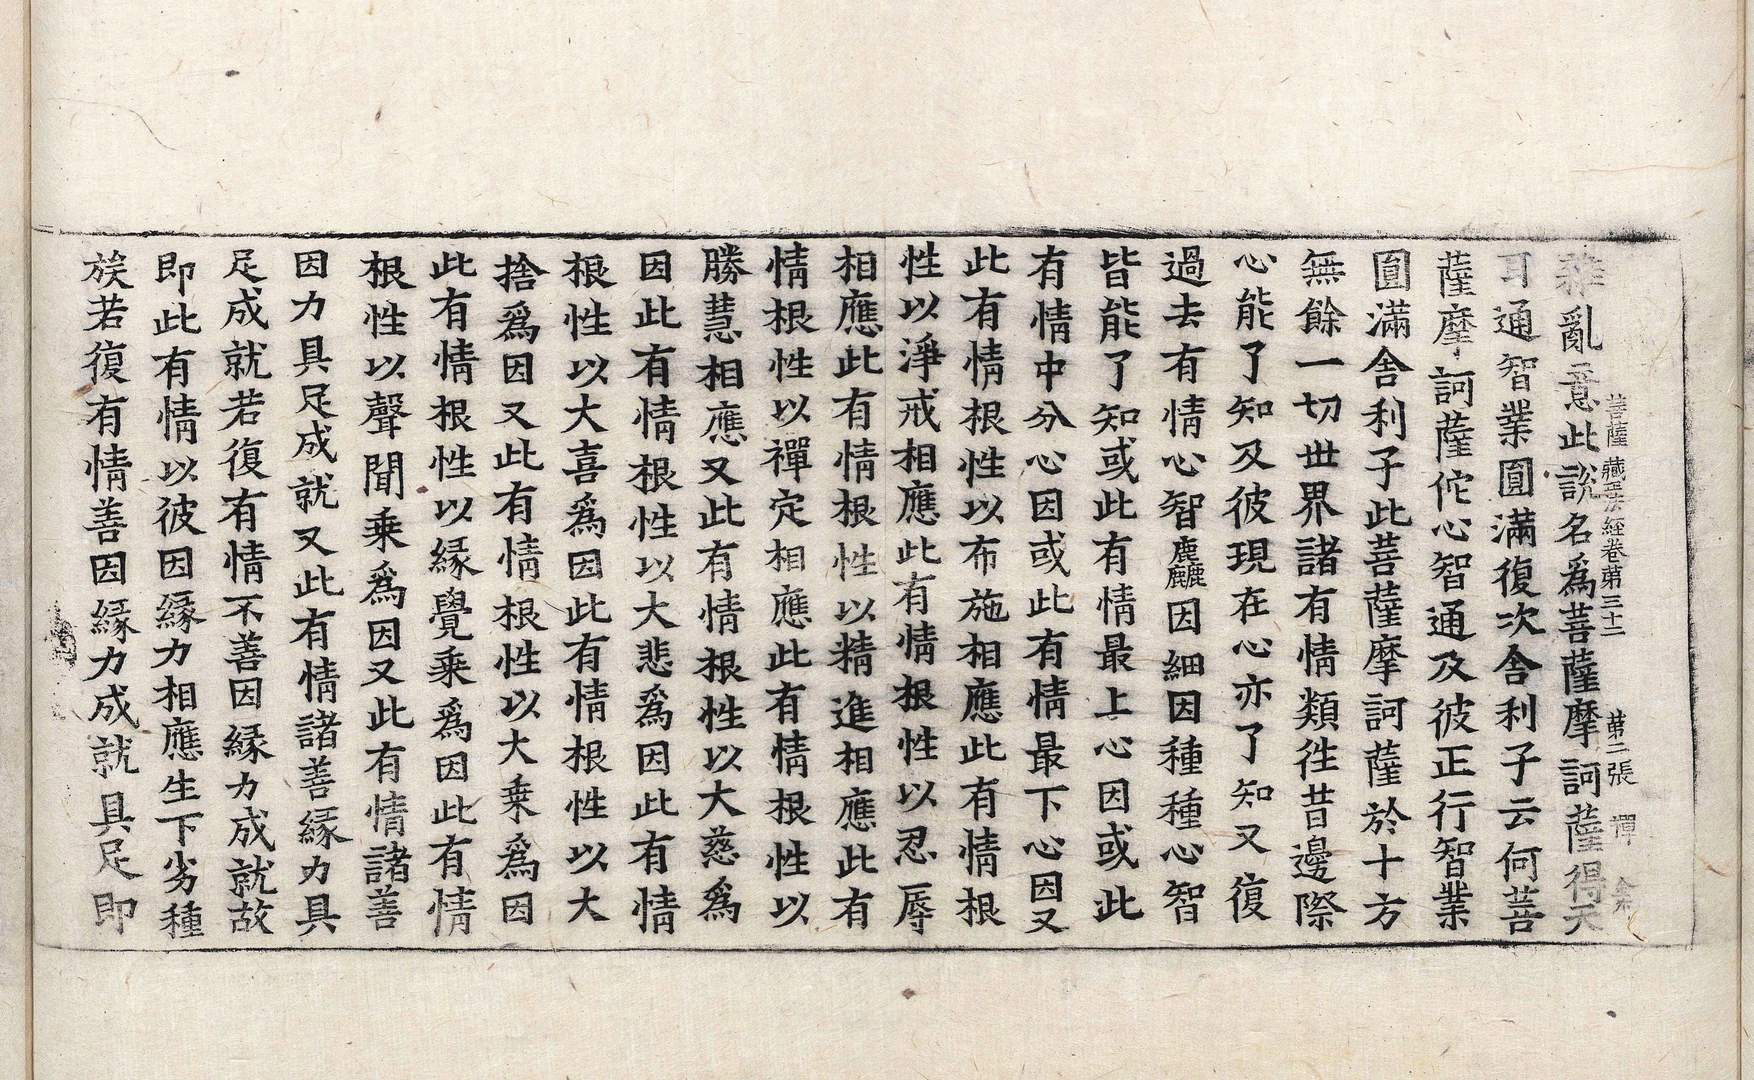 雜亂意此說名爲菩薩摩訶薩得天
菩薩藏正法經卷第三十二 第二張 禪
耳通智業圓滿復次舍利子云何菩
薩摩訶薩佗心智通及彼正行智業
圓滿舍利子此菩薩摩訶薩於十方
無餘一切世界諸有情類徃昔邊際
心能了知及彼現在心亦了知又復
過去有情心智麁因細因種種心智
皆能了知或此有情最上心因或此
有情中分心因或此有情最下心因又
此有情根性以布施相應此有情根
性以淨戒相應此有情根性以忍辱
相應此有情根性以精進相應此有
情根性以禪定相應此有情根性以
勝慧相應又此有情根性以大慈爲
因此有情根性以大悲爲因此有情
根性以大喜爲因此有情根性以大
捨爲因又此有情根性以大乘爲因
此有情根性以緣覺乘爲因此有情
根性以聲聞乘爲因又此有情諸善
因力具足成就又此有情諸善緣力具
足成就若復有情不善因緣力成就故
即此有情以彼因緣力相應生下劣種
族若復有情善因緣力成就具足即